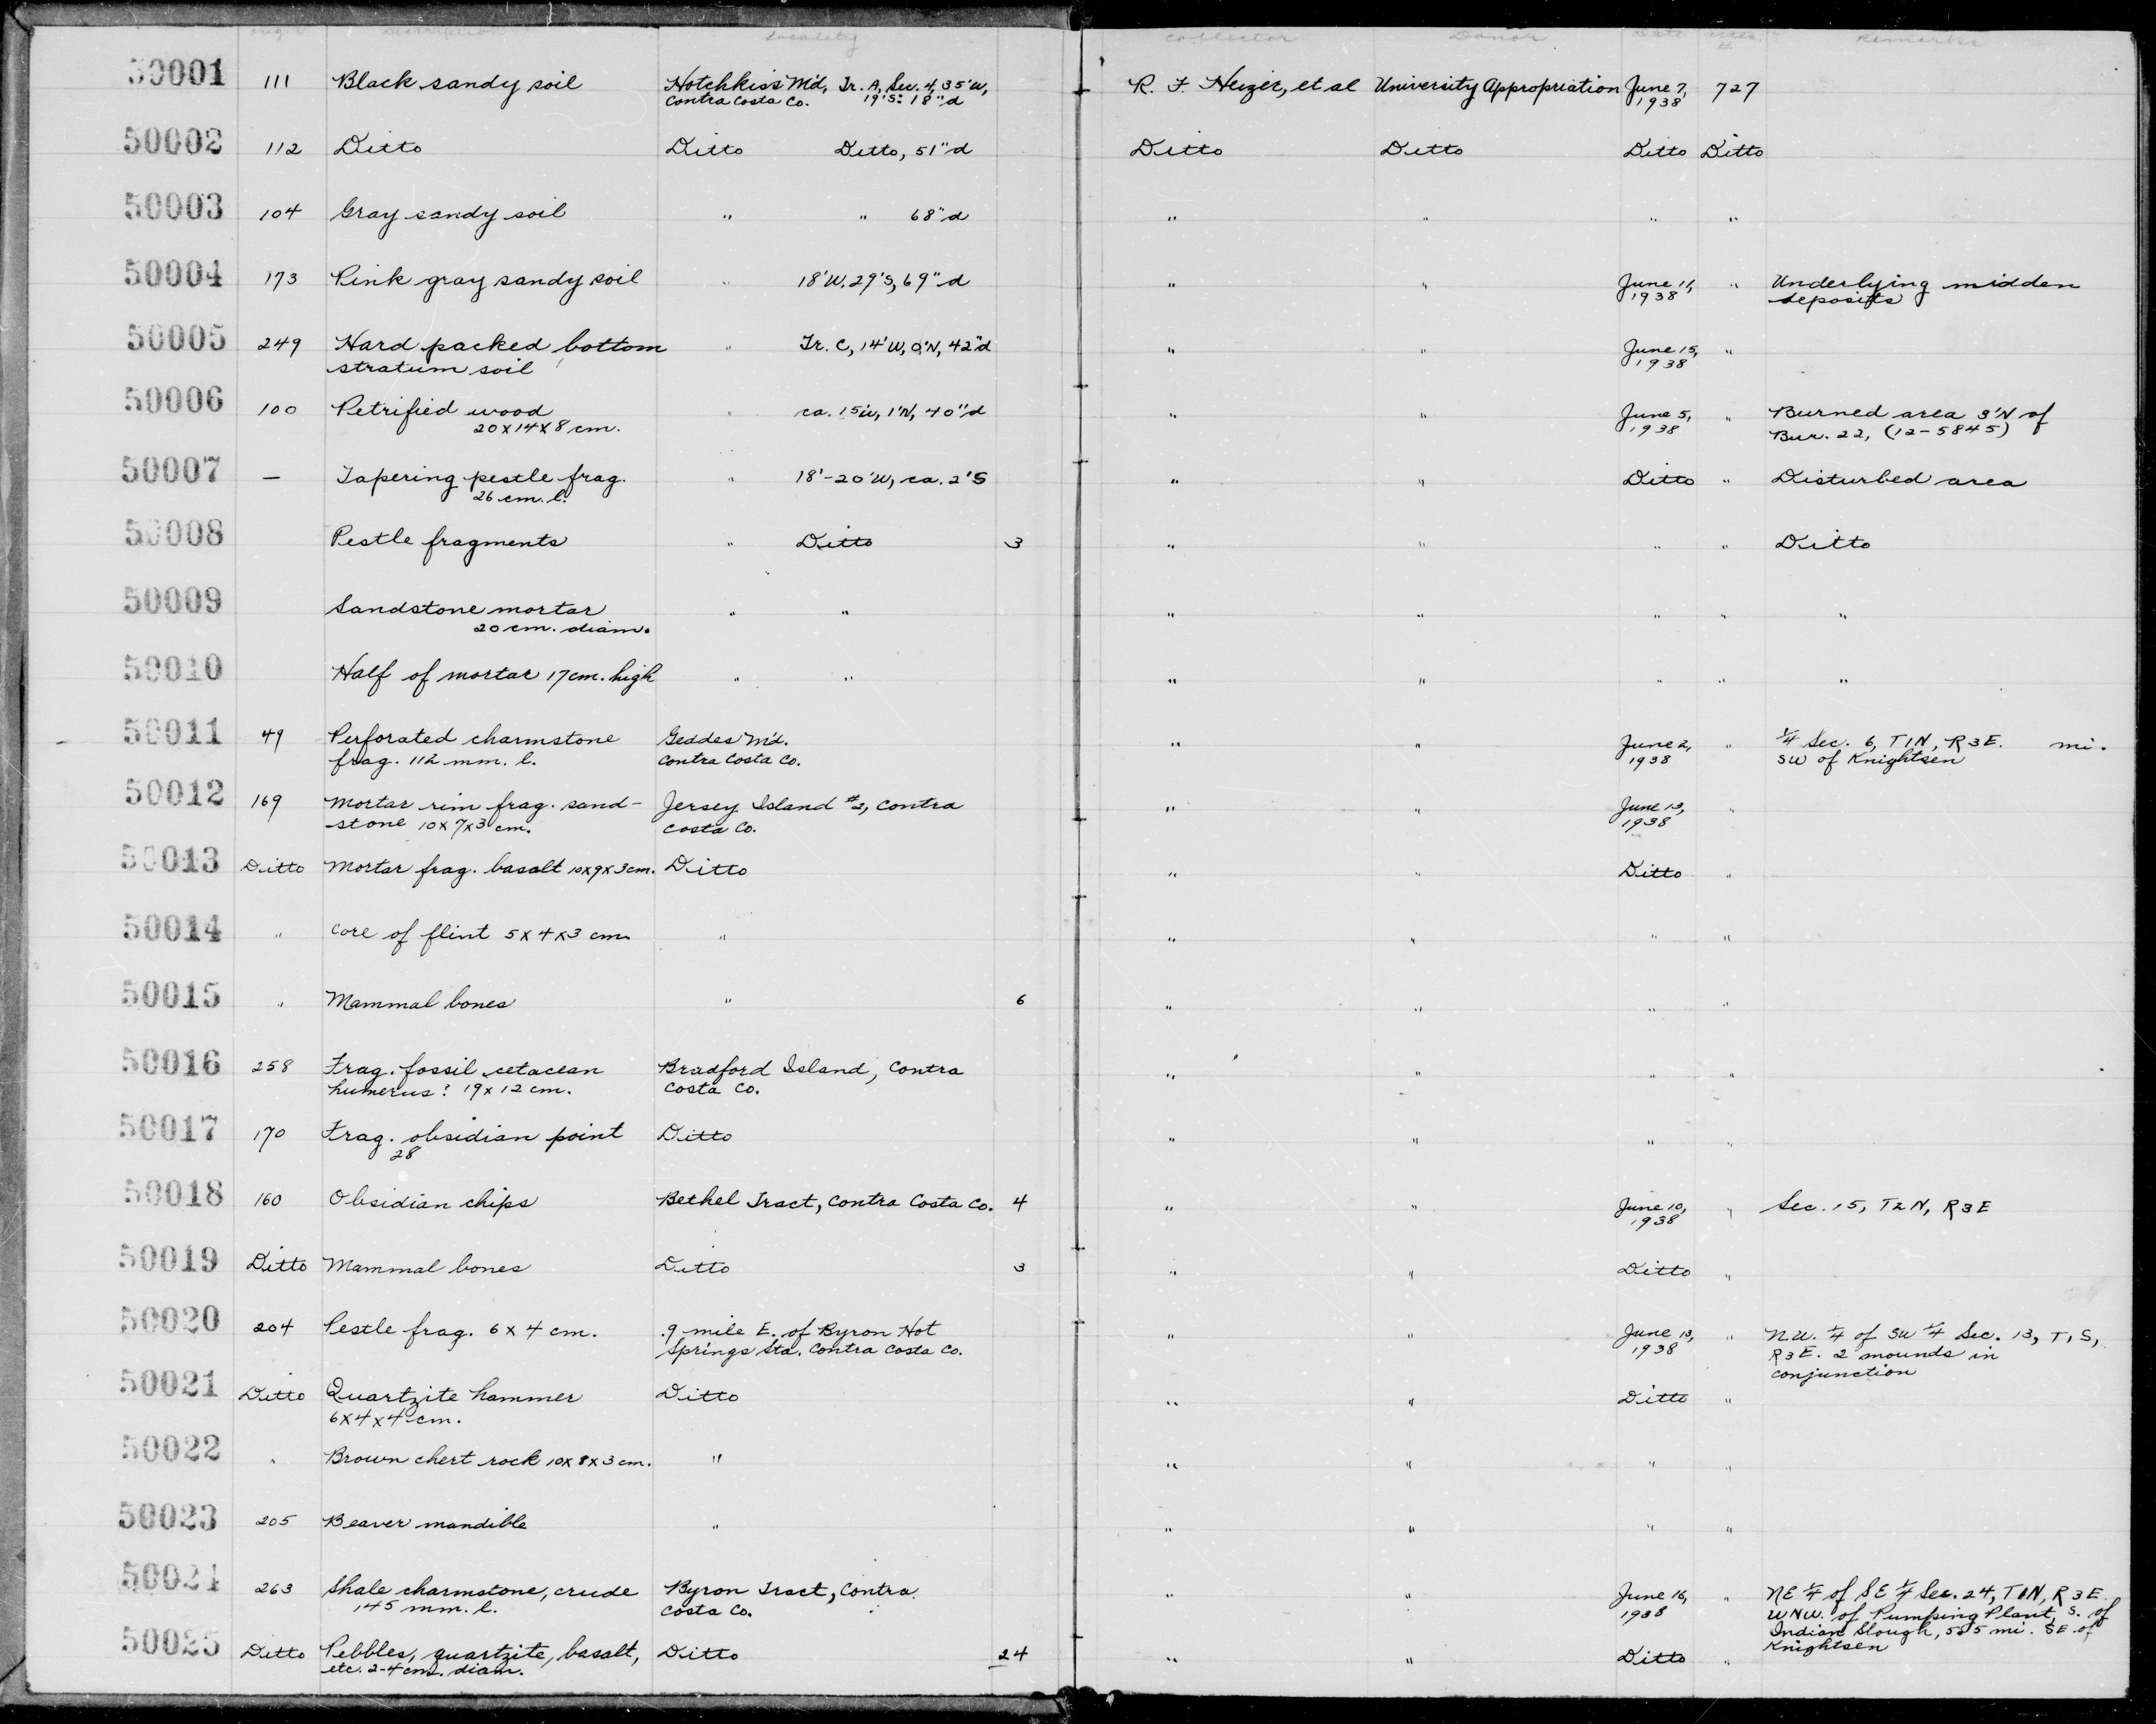 Description Locality Collector Donor Date Remarks
50001 111 Black sandy soil Hotchkiss M'd, Tr. A, Sec. 4, 35'W, R. F. Heizer, et al University Appropriation June 7, 727
Contra Costa Co. 19'S: 18"d 1938
50002 112 Ditto Ditto Ditto, 51"d Ditto Ditto Ditto Ditto
50003 104 Gray sandy soil " " 68"d " " " "
50004 173 Pink gray sandy soil " 18'W, 29'S, 69"d " " June 11, " Underlying midden
1938 deposits
50005 249 Hard packed bottom " Tr. C, 14'W, 0'N, 42"d " " June 15, "
stratum soil 1938
50006 100 Petrified wood " ca. 15'W, 1'N, 40"d " " June 5, " Burned area 3'N of
20x14x8 cm. 1938 Bur. 22, (12-5845)
50007 — Tapering pestle frag. " 18'-20'W, ca. 2'S " " Ditto " Disturbed area
26 cm. l.
50008 Pestle fragments " Ditto 3 " " " " Ditto
50009 Sandstone mortar " " " " " " "
20 cm. diam.
50010 Half of mortar 17cm. high " " " " " " "
50011 49 Perforated charmstone Geddes M'd. " " June 2, " 1/4 Sec. 6, T1N, R3E. mi.
frag. 112 mm. l. Contra Costa Co. 1938 SW of Knightsen
50012 169 Mortar rim frag. sand- Jersey Island #2, Contra " " June 13, "
stone 10x7x3 cm. Costa Co. 1938
50013 Ditto Mortar frag. basalt 10x9x3cm. Ditto " " Ditto "
50014 " Core of flint 5x4x3 cm. " " " " "
50015 " Mammal bones " 6 " " " "
50016 258 Frag. fossil cetacean Bradford Island, Contra " " " "
humerus? 19x12 cm. Costa Co.
50017 170 Frag. obsidian point Ditto " " " "
28
50018 160 Obsidian chips Bethel Tract, Contra Costa Co. 4 " " June 10, " Sec. 15, T2N, R3E
1938
50019 Ditto Mammal bones Ditto 3 " " Ditto "
50020 204 Pestle frag. 6x4 cm. .9 mile E. of Byron Hot " " June 13, " N.W. 1/4 of SW 1/4 Sec. 13, T1S,
Springs Sta. Contra Costa Co. 1938 R3E. 2 mounds in
conjunction
50021 Ditto Quartzite hammer Ditto " " Ditto "
6x4x4 cm.
50022 " Brown chert rock 10x8x3cm. " " " " "
50023 205 Beaver mandible " " " " "
50024 263 Shale charmstone, crude Byron Tract, Contra " " June 16, " NE 1/4 of SE 1/4 Sec. 24, T1N, R3E
145 mm. l. Costa Co. 1938 WNW. of Pumping Plant, S. of
Indian Slough, 5.5 mi. SE of
Knightsen
50025 Ditto Pebbles, quartzite, basalt, Ditto 24 " " Ditto "
etc. 2-4cm. diam.